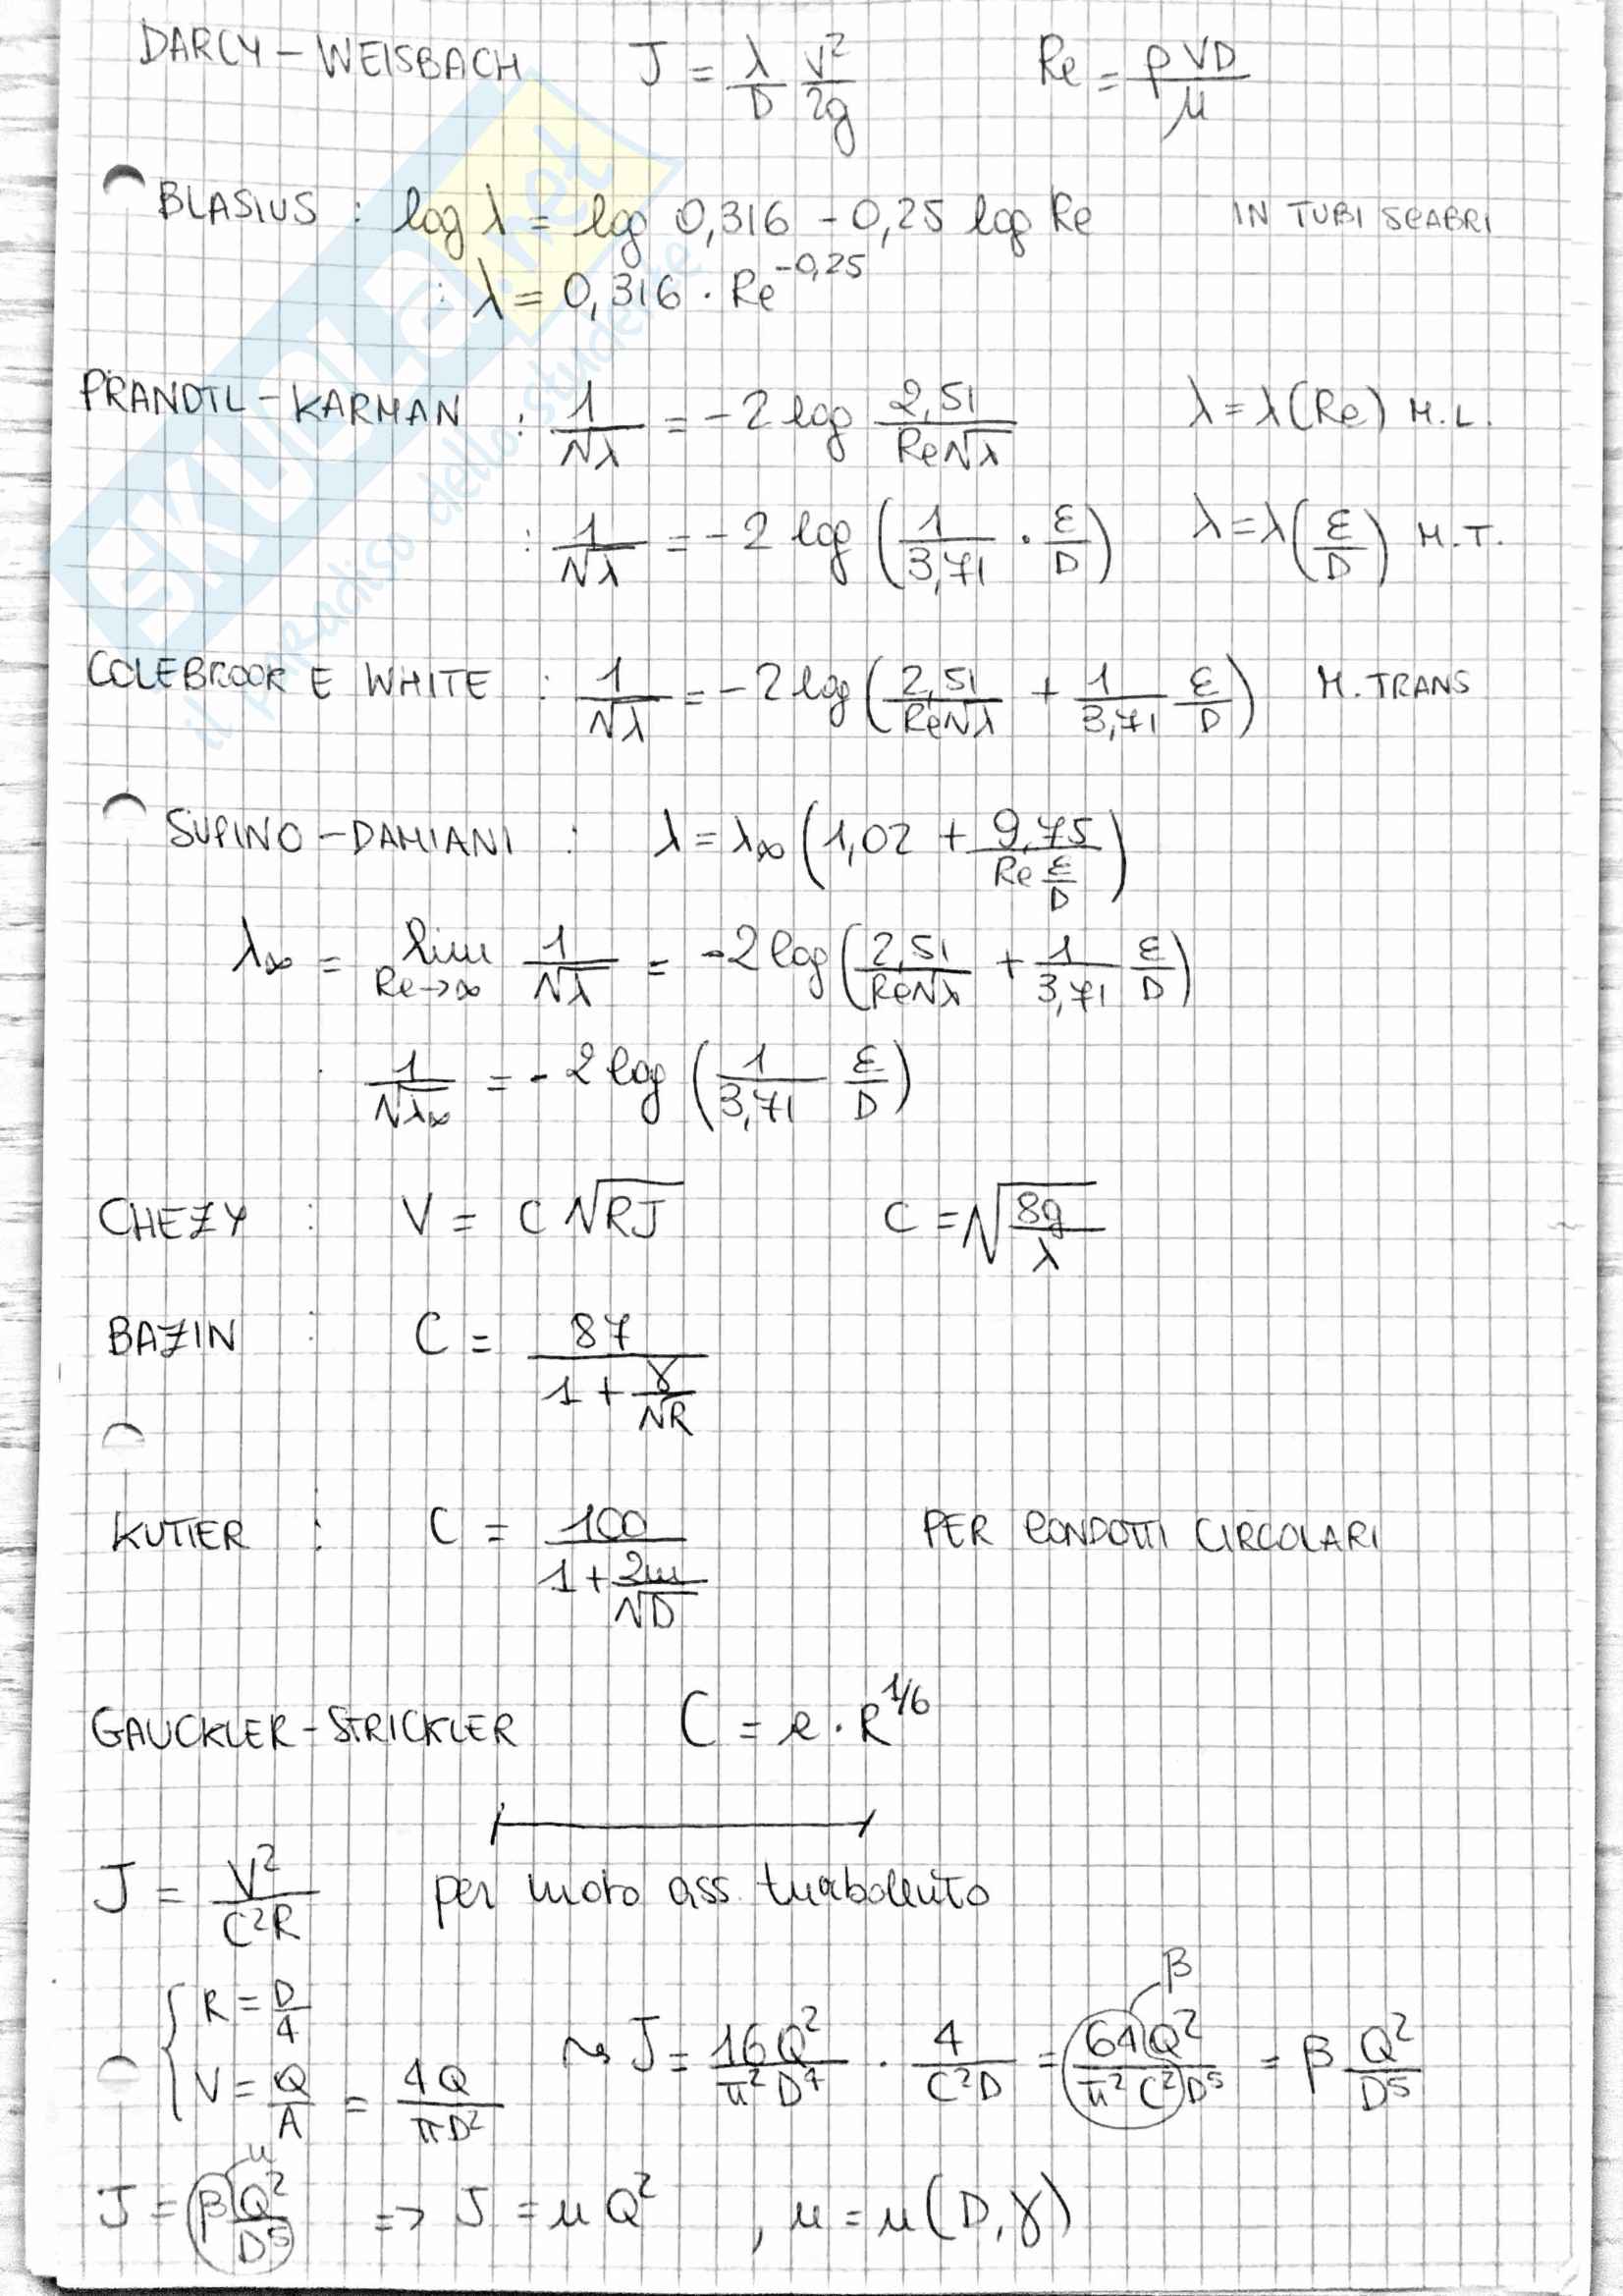 DARCY - WEISBACH J = λ/D V²/2g Re = ρVD/μ
BLASIUS : log λ = log 0,316 - 0,25 log Re IN TUBI SCABRI
: λ = 0,316 · Re^-0,25
PRANDTL - KARMAN : 1/√λ = -2 log 2,51/(Re√λ) λ = λ(Re) M.L.
: 1/√λ = -2 log (1/3,71 · ε/D) λ = λ(ε/D) M.T.
COLEBROOK E WHITE : 1/√λ = -2 log (2,51/(Re√λ) + 1/3,71 ε/D) M. TRANS
SUPINO - DAMIANI : λ = λ∞ (1,02 + 9,75/(Re ε/D))
λ∞ = lim Re→∞ 1/√λ = -2 log (2,51/(Re√λ) + 1/3,71 ε/D)
1/√λ∞ = -2 log (1/3,71 ε/D)
CHEZY : V = C √RJ C = √(8g/λ)
BAZIN : C = 87/(1 + γ/√R)
KUTTER : C = 100/(1 + 2m/√D) PER CONDOTTI CIRCOLARI
GAUCKLER - STRICKLER C = c · R^1/6
J = V²/C²R per moto ass. turbolento
β
{ R = D/4
V = Q/A = 4Q/πD² ⇝ J = 16Q²/π²D⁴ · 4/C²D = 64Q²/π²C²D⁵ = β Q²/D⁵
μ
J = β Q²/D⁵ => J = μQ² , μ = μ(D, γ)
SKUOLA.net
il paradiso dello studente